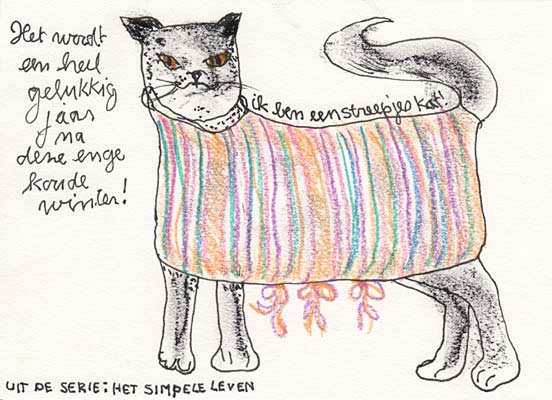 Het wordt
een heel
gelukkig
jaar
na
deze enge
koude
winter!
ik ben een streepjes kat!
UIT DE SERIE: HET SIMPELE LEVEN